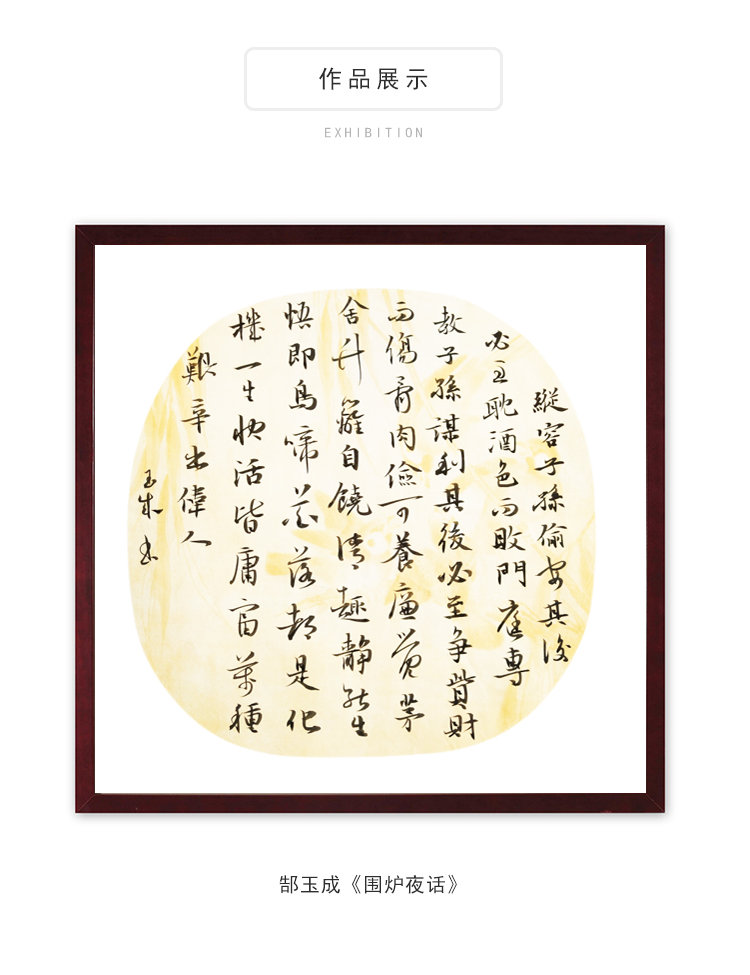 作品展示
EXHIBITION
縱容子孫偷安其後
必至耽酒色而敗門庭專
教子孫謀利其後必至争貲財
而傷骨肉儉可養廉覺茅
舍竹籬自饒清趣静能生
悟即鳥啼花落都是化
機一生快活皆庸富萬種
艱辛出偉人
玉成书
郜玉成《围炉夜话》